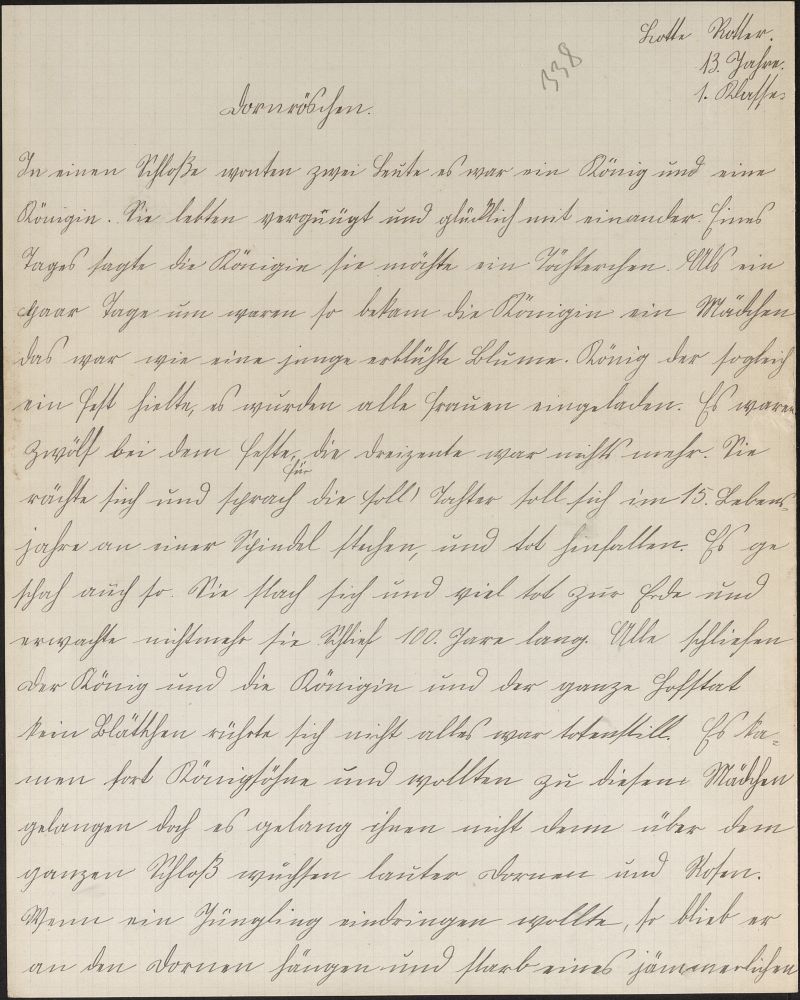 Lotte Rotter.
13. Jahre.
1. Klasse.
338
Dornröschen.
In einen Schloße wonten zwei Leute es war ein König und eine
Königin. Sie lebten vergnügt und glücklich mit einander. Eines
Tages sagte die Königin sie möchte ein Töchterchen. Als ein
paar Tage um waren so bekam die Königin ein Mädchen
das war wie eine junge erblühte Blume. König der sogleich
ein Fest hielte, es wurden alle Frauen eingeladen. Es waren
zwölf bei dem Feste, die dreizente war nichts mehr. Sie
für
rächte sich und sprach die soll Tochter soll sich im 15. Lebens-
jahre an einer Spindel stechen, und tot hinfallen. Es ge
schah auch so. Sie stach sich und viel tot zur Erde und
erwachte nichtmehr sie Schlief 100. Jare lang. Alle schliefen
Der König und die Königin und der ganze Hofstat
kein Blättchen rührte sich nicht alles war totenstill. Es ka-
men fort Königsöhne und wollten zu diesem Mädchen
gelangen doch es gelang ihnen nicht denn über dem
ganzen Schloß wuchsen lauter Dornen und Rosen.
Wenn ein Jüngling eindringen wollte, so blieb er
an den Dornen hängen und starb eines jämmerlichen